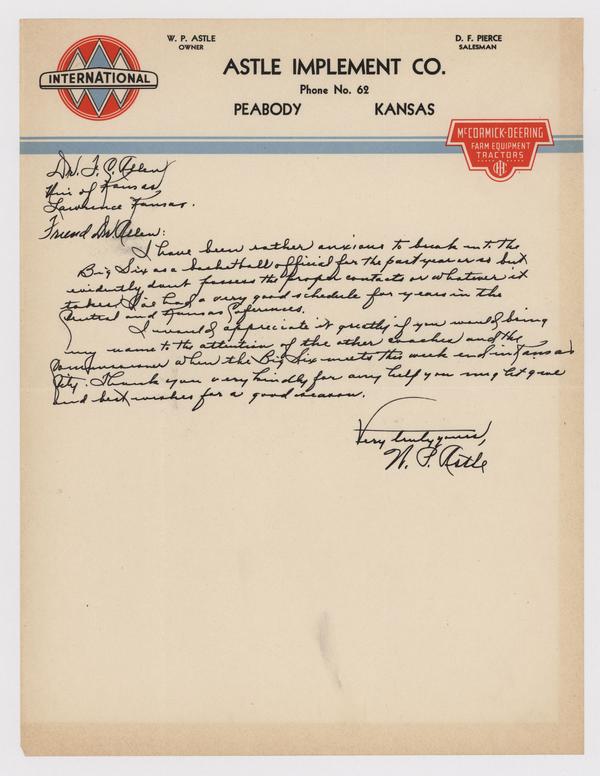 W. P. ASTLE
OWNER
D. F. PIERCE
SALESMAN
INTERNATIONAL
ASTLE IMPLEMENT CO.
Phone No. 62
PEABODY KANSAS
McCORMICK-DEERING
FARM EQUIPMENT
TRACTORS
IHC
Dr. F. C. Allen
Uni of Kansas
Lawrence Kansas.
Friend Dr Allen:
I have been rather anxious to break into the
Big Six as a basketball official for the past year or so but
evidently dont possess the proper contacts or whatever it
takes. I've had a very good schedule for years in the
Central and Kansas Conferences.
I would appreciate it greatly if you would bring
my name to the attention of the other coaches and the
Commissioner when the Big Six meets this week end in Kansas
City. Thank you very kindly for any help you might give
and best wishes for a good season.
Very truly yours,
W. P. Astle